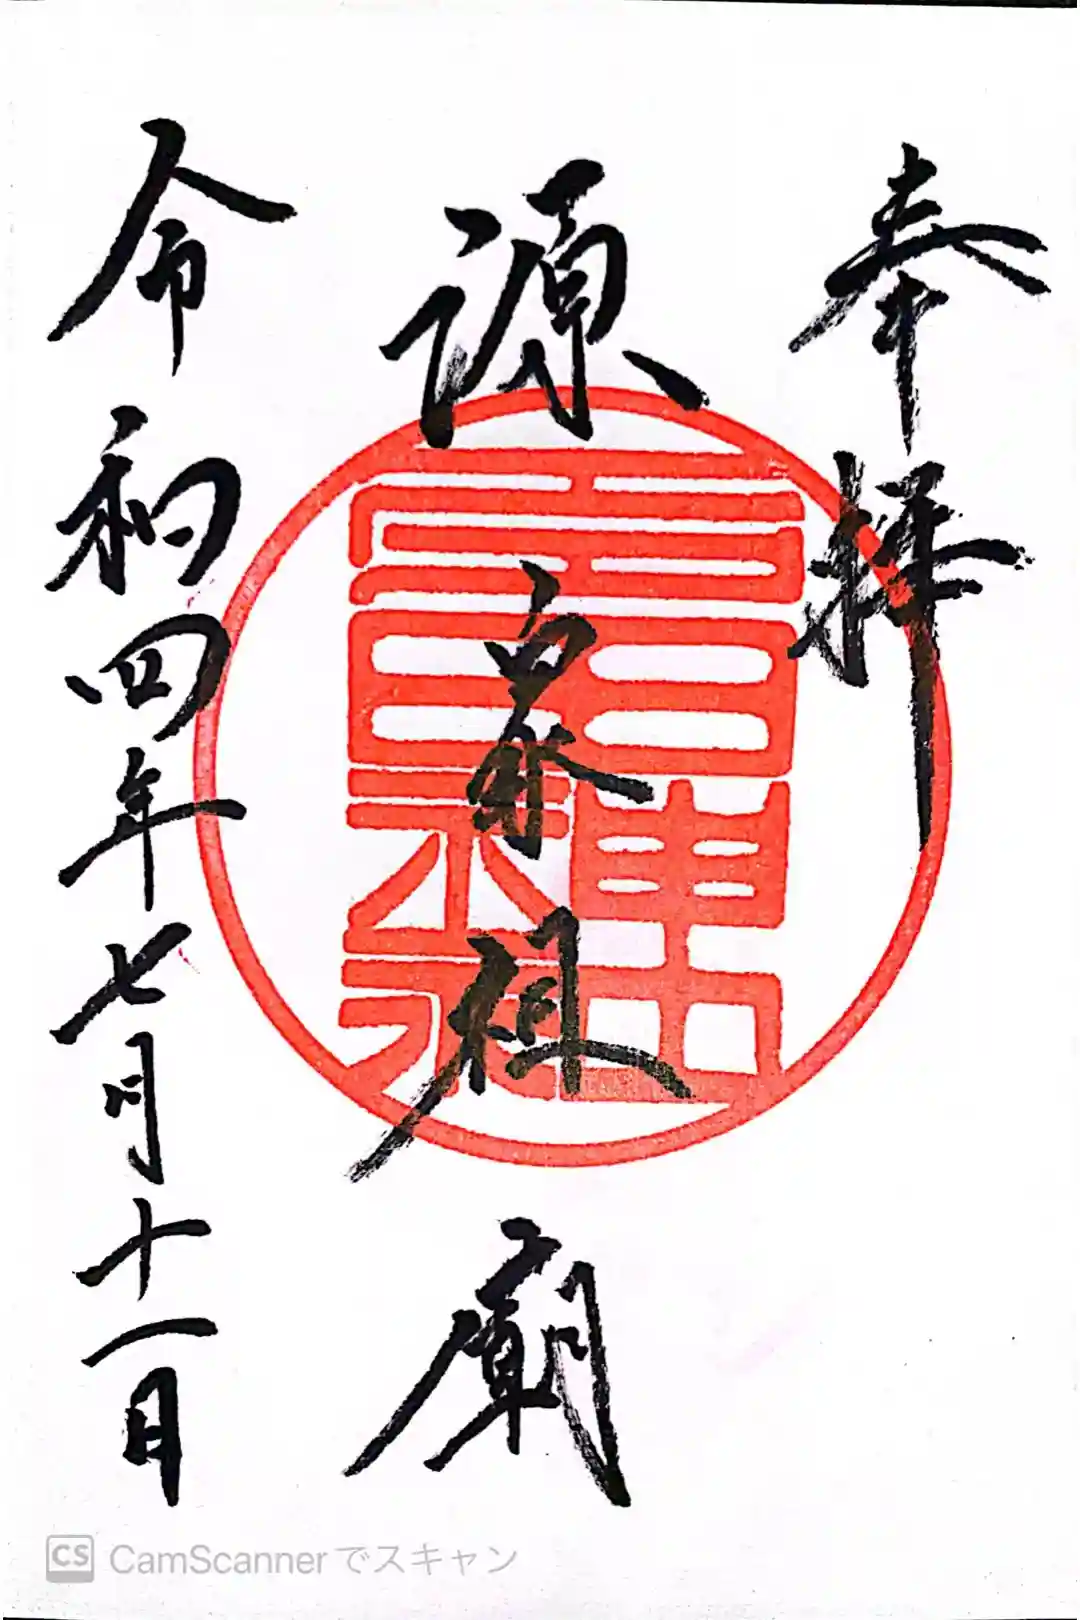 奉拝
源泉祖廟
令和四年七月十一日
CS CamScannerでスキャン